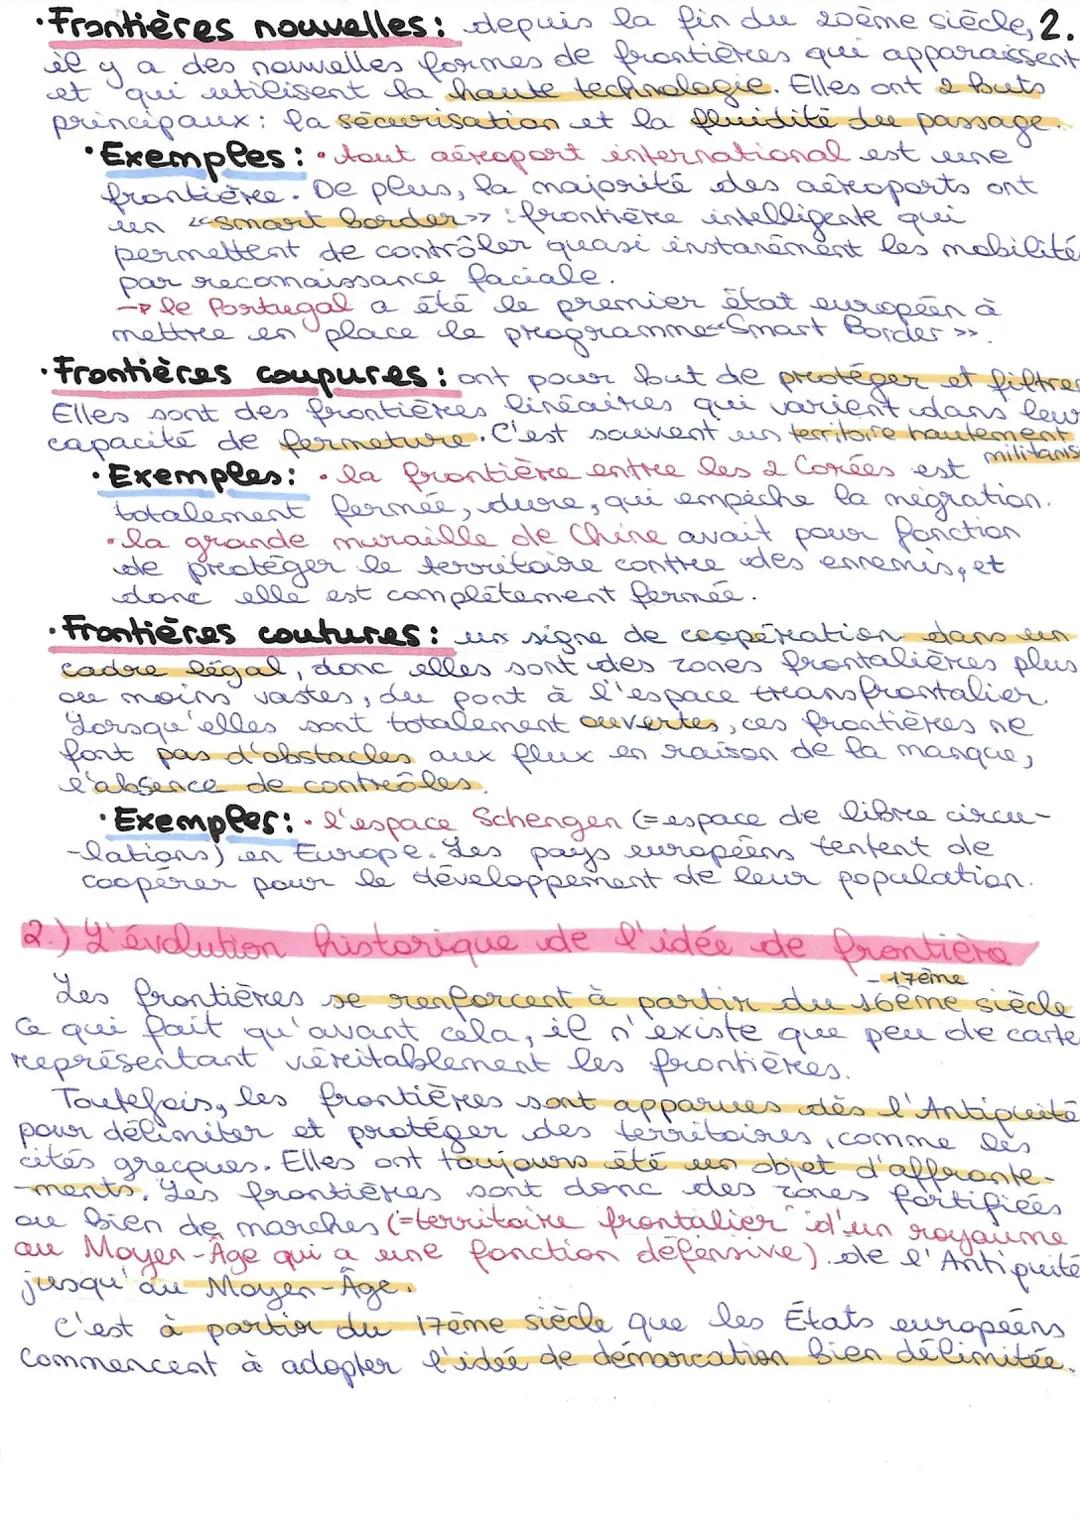 ·Frontières nouvelles: depuis la fin du 20ème siècle, 2.
il y a des nouvelles formes de frontières qui apparaissent
et qui utilisent la haute technologie. Elles ont 2 buts
principaux: la sécurisation et la fluidité du passage.
·Exemples: · tout aéroport international est une
frontière. De plus, la majorité des aéroports ont
un «smart border» : frontière intelligente qui
permettent de contrôler quasi instanément les mobilité
par reconaissance faciale.
→ le Portugal a été le premier état européen à
mettre en place le programme «Smart Border».
·Frontières coupures: ont pour but de protéger et filtrer
Elles sont des frontières linéaires qui varient dans leur
capacité de fermeture. C'est souvent un territoire hautement
militaris
·Exemples: · la frontière entre les 2 Corées est
totalement fermée, dure, qui empêche la migration.
·la grande muraille de Chine avait pour fonction
de protéger le territoire contre des ennemis, et
donc elle est complètement fermée.
·Frontières coutures: un signe de coopération dans un
cadre légal, donc elles sont des zones frontalières plus
ou moins vastes, du pont à l'espace transfrontalier.
Lorsqu'elles sont totalement ouvertes, ces frontières ne
font pas d'obstacles aux flux en raison de la manque,
l'absence de contrôles.
·Exemples: · l'espace Schengen (=espace de libre circu-
-lations) en Europe. Les pays européens tentent de
coopérer pour le développement de leur population.
2.) L'évolution historique de l'idée de frontière
-17ème
Les frontières se renforcent à partir du 16ème siècle
Ce qui fait qu'avant cela, il n'existe que peu de carte
représentant véritablement les frontières.
Toutefois, les frontières sont apparues dès l'Antiquité
pour délimiter et protéger des territoires, comme les
cités grecques. Elles ont toujours été un objet d'affronte-
-ments. Les frontières sont donc des zones fortifiées
ou bien de marches (=territoire frontalier d'un royaume
au Moyen-Âge qui a une fonction défensive) de l'Antiquité
jusqu'au Moyen-Âge.
C'est à partir du 17ème siècle que les États européens
commencent à adopter l'idée de démarcation bien délimitée.